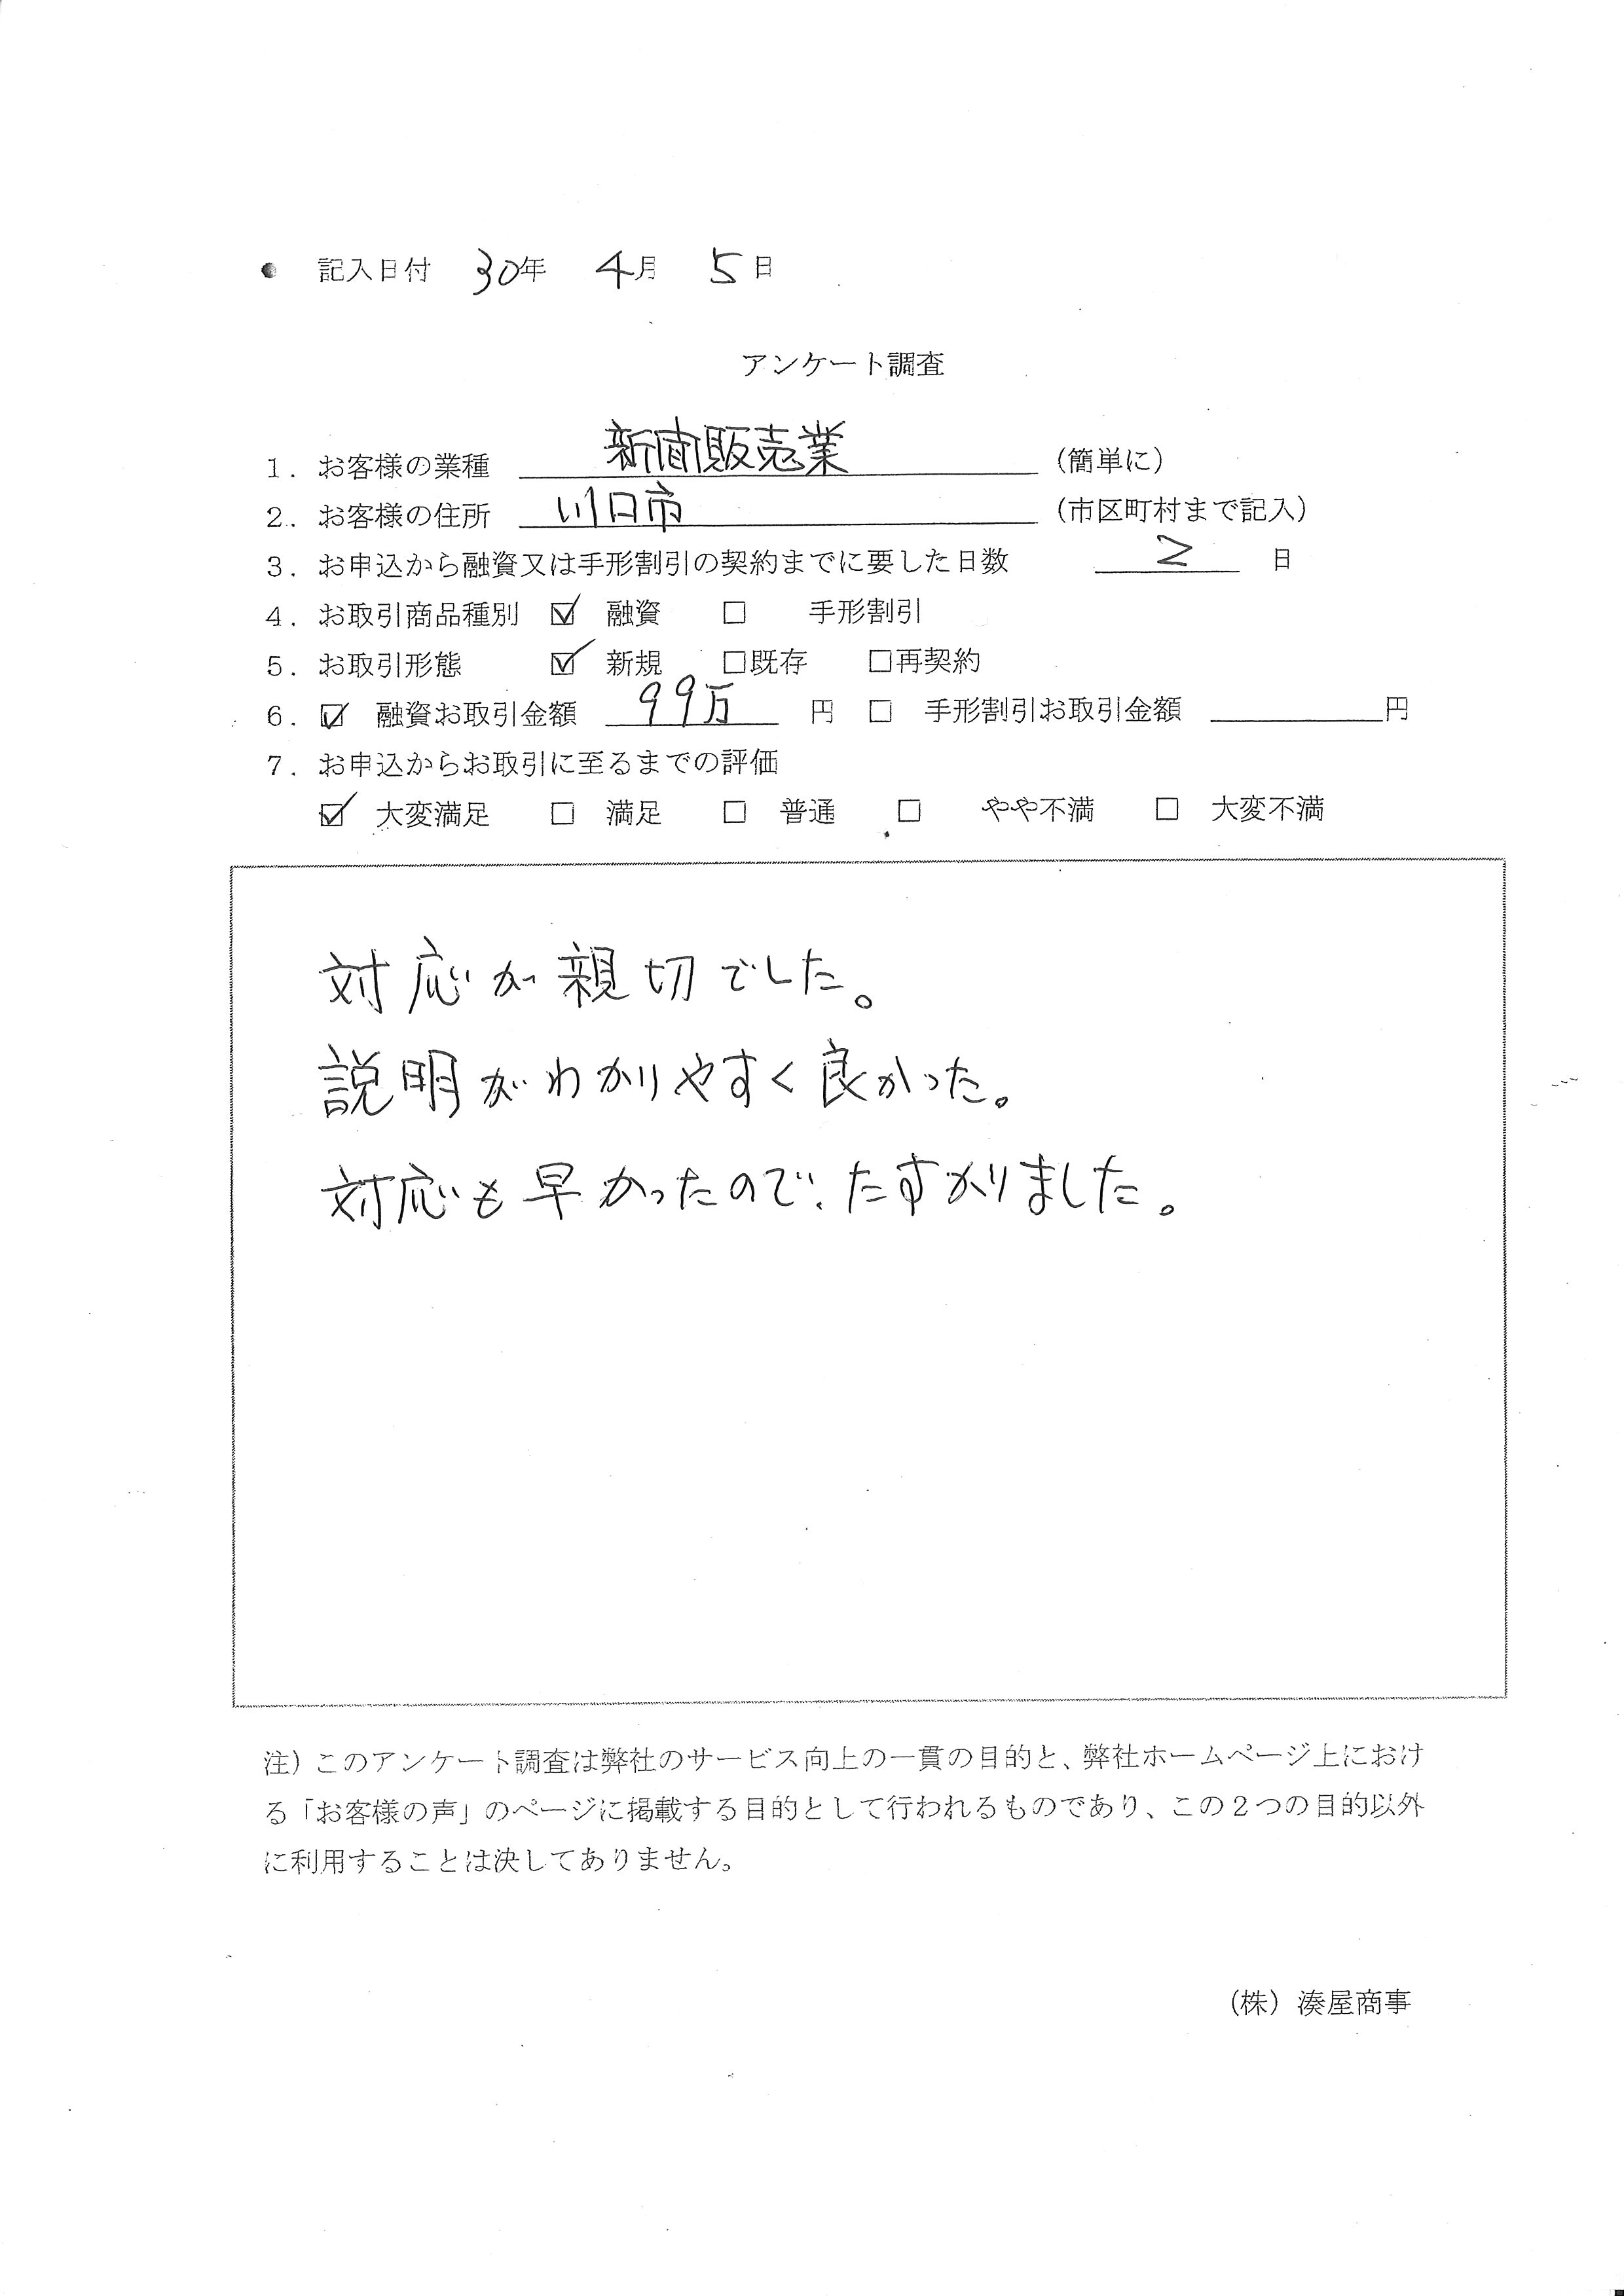 ● 記入日付 30年 4月 5日
アンケート調査
1．お客様の業種 新聞販売業 （簡単に）
2．お客様の住所 川口市 （市区町村まで記入）
3．お申込から融資又は手形割引の契約までに要した日数 2 日
4．お取引商品種別 ☑ 融資 □ 手形割引
5．お取引形態 ☑ 新規 □既存 □再契約
6．☑ 融資お取引金額 99万 円 □ 手形割引お取引金額 円
7．お申込からお取引に至るまでの評価
☑ 大変満足 □ 満足 □ 普通 □ やや不満 □ 大変不満
対応が親切でした。
説明がわかりやすく良かった。
対応も早かったので、たすかりました。
注）このアンケート調査は弊社のサービス向上の一貫の目的と、弊社ホームページ上におけ
る「お客様の声」のページに掲載する目的として行われるものであり、この２つの目的以外
に利用することは決してありません。
（株）湊屋商事